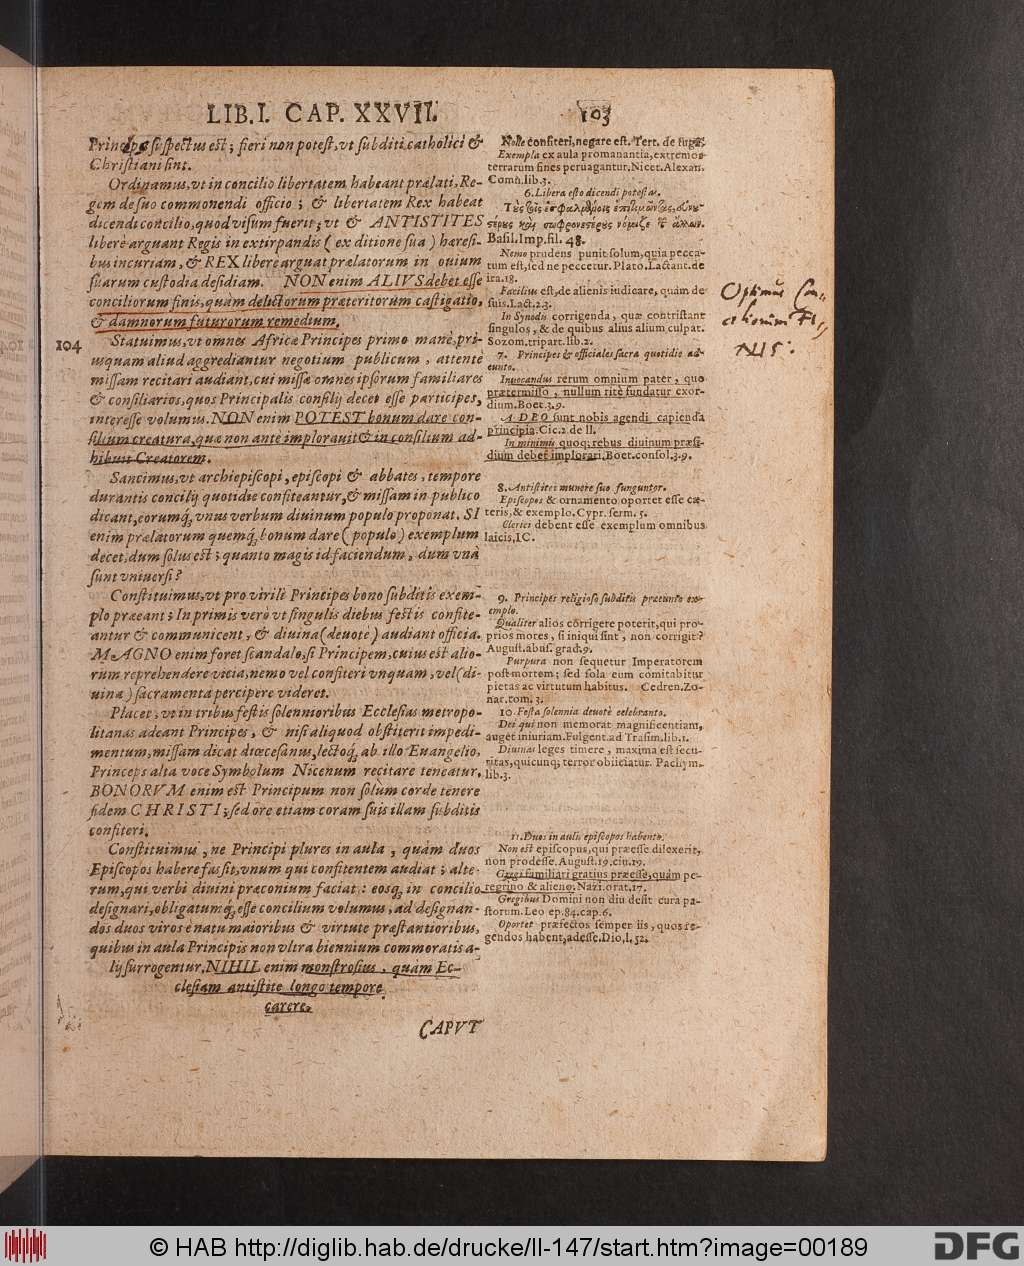 LIB.I. CAP. XXVII.
103
Princeps suspectus est; fieri non potest, vt subditi catholici &
Christiani sint.
Ordinamus, vt in concilio libertatem habeant prælati, Re-
gem de suo commonendi officio; & libertatem Rex habeat
dicendi concilio, quod visum fuerit; vt & ANTISTITES
liberè arguant Regis in extirpandis (ex ditione sua) hæresi-
bus incuriam, & REX libere arguat prælatorum in ouium
suarum custodia desidiam. NON enim ALIVS debet esse
conciliorum finis, quàm delictorum præteritorum castigatio,
& damnorum futurorum remedium.
104
Statuimus, vt omnes Africæ Principes primo manè, pri-
usquam aliud aggrediantur negotium publicum, attentè
missam recitari audiant, cui missæ omnes ipsorum familiares
& consiliarios, quos Principalis consilij decet esse participes,
interesse volumus. NON enim POTEST bonum dare con-
silium creatura, quæ non antè implorauit & in consilium ad-
hibuit Creatorem.
Sancimus, vt archiepiscopi, episcopi & abbates, tempore
durantis concilij quotidie confiteantur, & missam in publico
dicant, eorumq́, vnus verbum diuinum populo proponat. SI
enim prælatorum quemq́, bonum dare (populo) exemplum
decet, dum solus est; quanto magis id faciendum, dum vnà
sunt vniuersi?
Constituimus, vt pro virili Principes bono subditis exem-
plo præeant; In primis verò vt singulis diebus festis confite-
antur & communicent, & diuina (deuotè) audiant officia.
MAGNO enim foret scandalo, si Principem, cuius est alio-
rum reprehendere vitia, nemo vel confiteri vnquam, vel (di-
uina) sacramenta percipere videret.
Placet, vt in tribus festis solennioribus Ecclesias metropo-
litanas adeant Principes, & nisi aliquod obstiterit impedi-
mentum, missam dicat diœcesanus, lectoq́, ab illo Euangelio,
Princeps alta voce Symbolum Nicenum recitare teneatur.
BONORVM enim est Principum non solùm corde tenere
fidem CHRISTI; sed ore etiam coram suis illam subditis
confiteri.
Constituimus, ne Principi plures in aula, quàm duos
Episcopos habere fas sit, vnum qui confitentem audiat; alte-
rum, qui verbi diuini præconium faciat: eosq́, in concilio
designari, obligatumq́, esse concilium volumus, ad designan-
dos duos viros è natu maioribus & virtute præstantioribus,
quibus in aula Principis non vltra biennium commoratis a-
lij surrogentur. NIHIL enim monstrosius, quàm Ec-
clesiam antistite longo tempore
carere.
CAPVT
Nolle confiteri, negare est. Tert. de fuga.
Exempla ex aula promanantia, extremos
terrarum fines peruagantur. Nicet. Alexan.
Comn. lib. 3.
6. Libera esto dicendi potestas.
Basil. Imp. fil. 48.
Nemo prudens punit solum, quia pecca-
tum est, sed ne peccetur. Plato. Lactant. de
ira. 18.
Facilius est, de alienis iudicare, quàm de
suis. Lact. 2. 3.
In Synodis corrigenda, quæ contristant
singulos, & de quibus alius alium culpat.
Sozom. tripart. lib. 2.
7. Principes & officiales sacra quotidie ad-
eunto.
Inuocandus rerum omnium pater, quo
prætermisso, nullum ritè fundatur exor-
dium. Boet. 3. 9.
A DEO sunt nobis agendi capienda
principia. Cic. 2. de ll.
In minimis quoq; rebus diuinum præsi-
dium debet implorari. Boet. consol. 3. 9.
8. Antistites munere suo funguntor.
Episcopos & ornamento oportet esse cæ-
teris, & exemplo. Cypr. serm. 5.
Clerici debent esse exemplum omnibus
laicis, IC.
9. Principes religioso subditis præeunto ex-
emplo.
Qualiter alios corrigere poterit, qui pro-
prios mores, si iniqui sint, non corrigit?
August. abus. grad. 9.
Purpura non sequetur Imperatorem
post mortem; sed sola eum comitabitur
pietas ac virtutum habitus. Cedren. Zo-
nar. tom. 3.
10. Festa solennia deuotè celebranto.
Dei qui non memorat magnificentiam,
auget iniuriam. Fulgent. ad Trasim. lib. 1.
Diuinas leges timere, maxima est secu-
ritas, quicunq; terror obiiciatur. Pachym.
lib. 3.
11. Duos in aulis episcopos habento.
Non est episcopus, qui præesse dilexerit,
non prodesse. August. 19. ciu. 19.
Gregi familiari gratius præesse, quàm pe-
regrino & alieno. Nazi. orat. 17.
Gregibus Domini non diu desit cura pa-
storum. Leo ep. 84. cap. 6.
Oportet præfectos semper iis, quos re-
gendos habent, adesse. Dio, l. 52.
Optimus Con-
NIS.
© HAB http://diglib.hab.de/drucke/ll-147/start.htm?image=00189
DFG